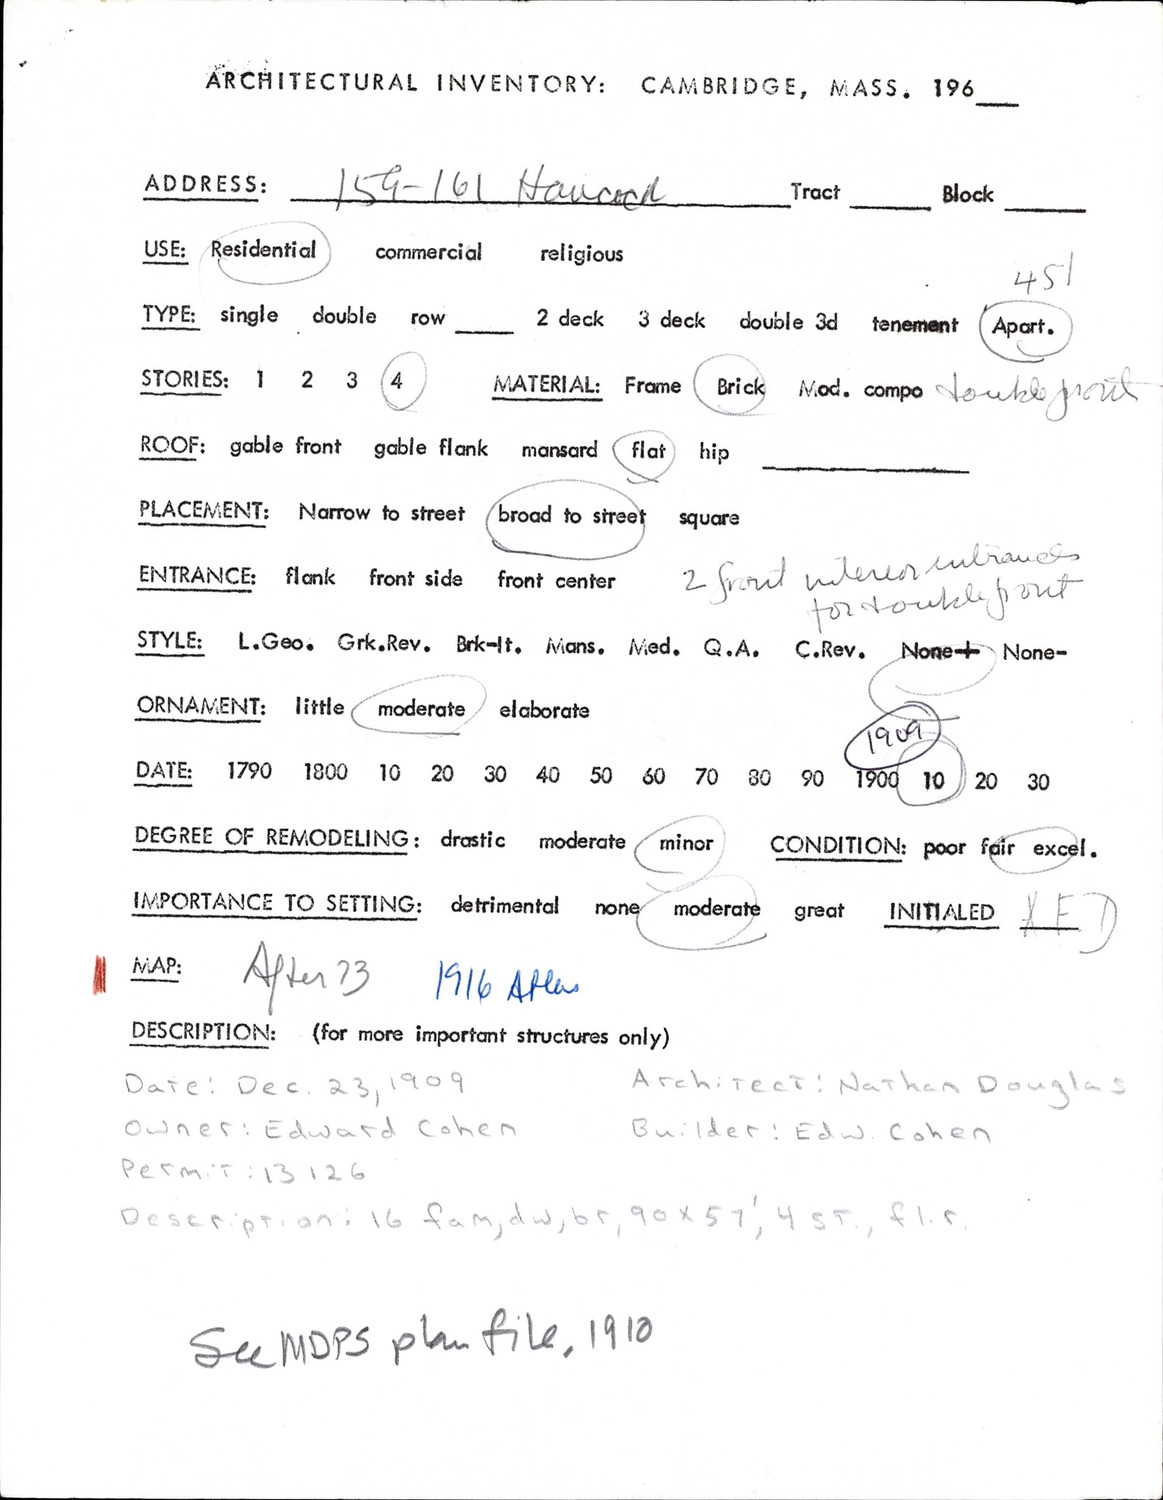 ARCHITECTURAL INVENTORY: CAMBRIDGE, MASS. 196___
ADDRESS: 159-161 Hancock Tract ______ Block ______
USE: Residential commercial religious
451
TYPE: single double row ____ 2 deck 3 deck double 3d tenement Apart.
STORIES: 1 2 3 4 MATERIAL: Frame Brick Mod. compo double front
ROOF: gable front gable flank mansard flat hip ______
PLACEMENT: Narrow to street broad to street square
ENTRANCE: flank front side front center 2 front interior entrances
for double front
STYLE: L.Geo. Grk.Rev. Brk-It. Mans. Med. Q.A. C.Rev. None+ None-
ORNAMENT: little moderate elaborate
1909
DATE: 1790 1800 10 20 30 40 50 60 70 80 90 1900 10 20 30
DEGREE OF REMODELING: drastic moderate minor CONDITION: poor fair excel.
IMPORTANCE TO SETTING: detrimental none moderate great INITIALED KED
MAP: After 73 1916 Atlas
DESCRIPTION: (for more important structures only)
Date: Dec. 23, 1909 Architect: Nathan Douglas
Owner: Edward Cohen Builder: Edw. Cohen
Permit: 13126
Description: 16 fam, dw, br, 90 x 57', 4 st., fl. r.
See MDPS plan file, 1910